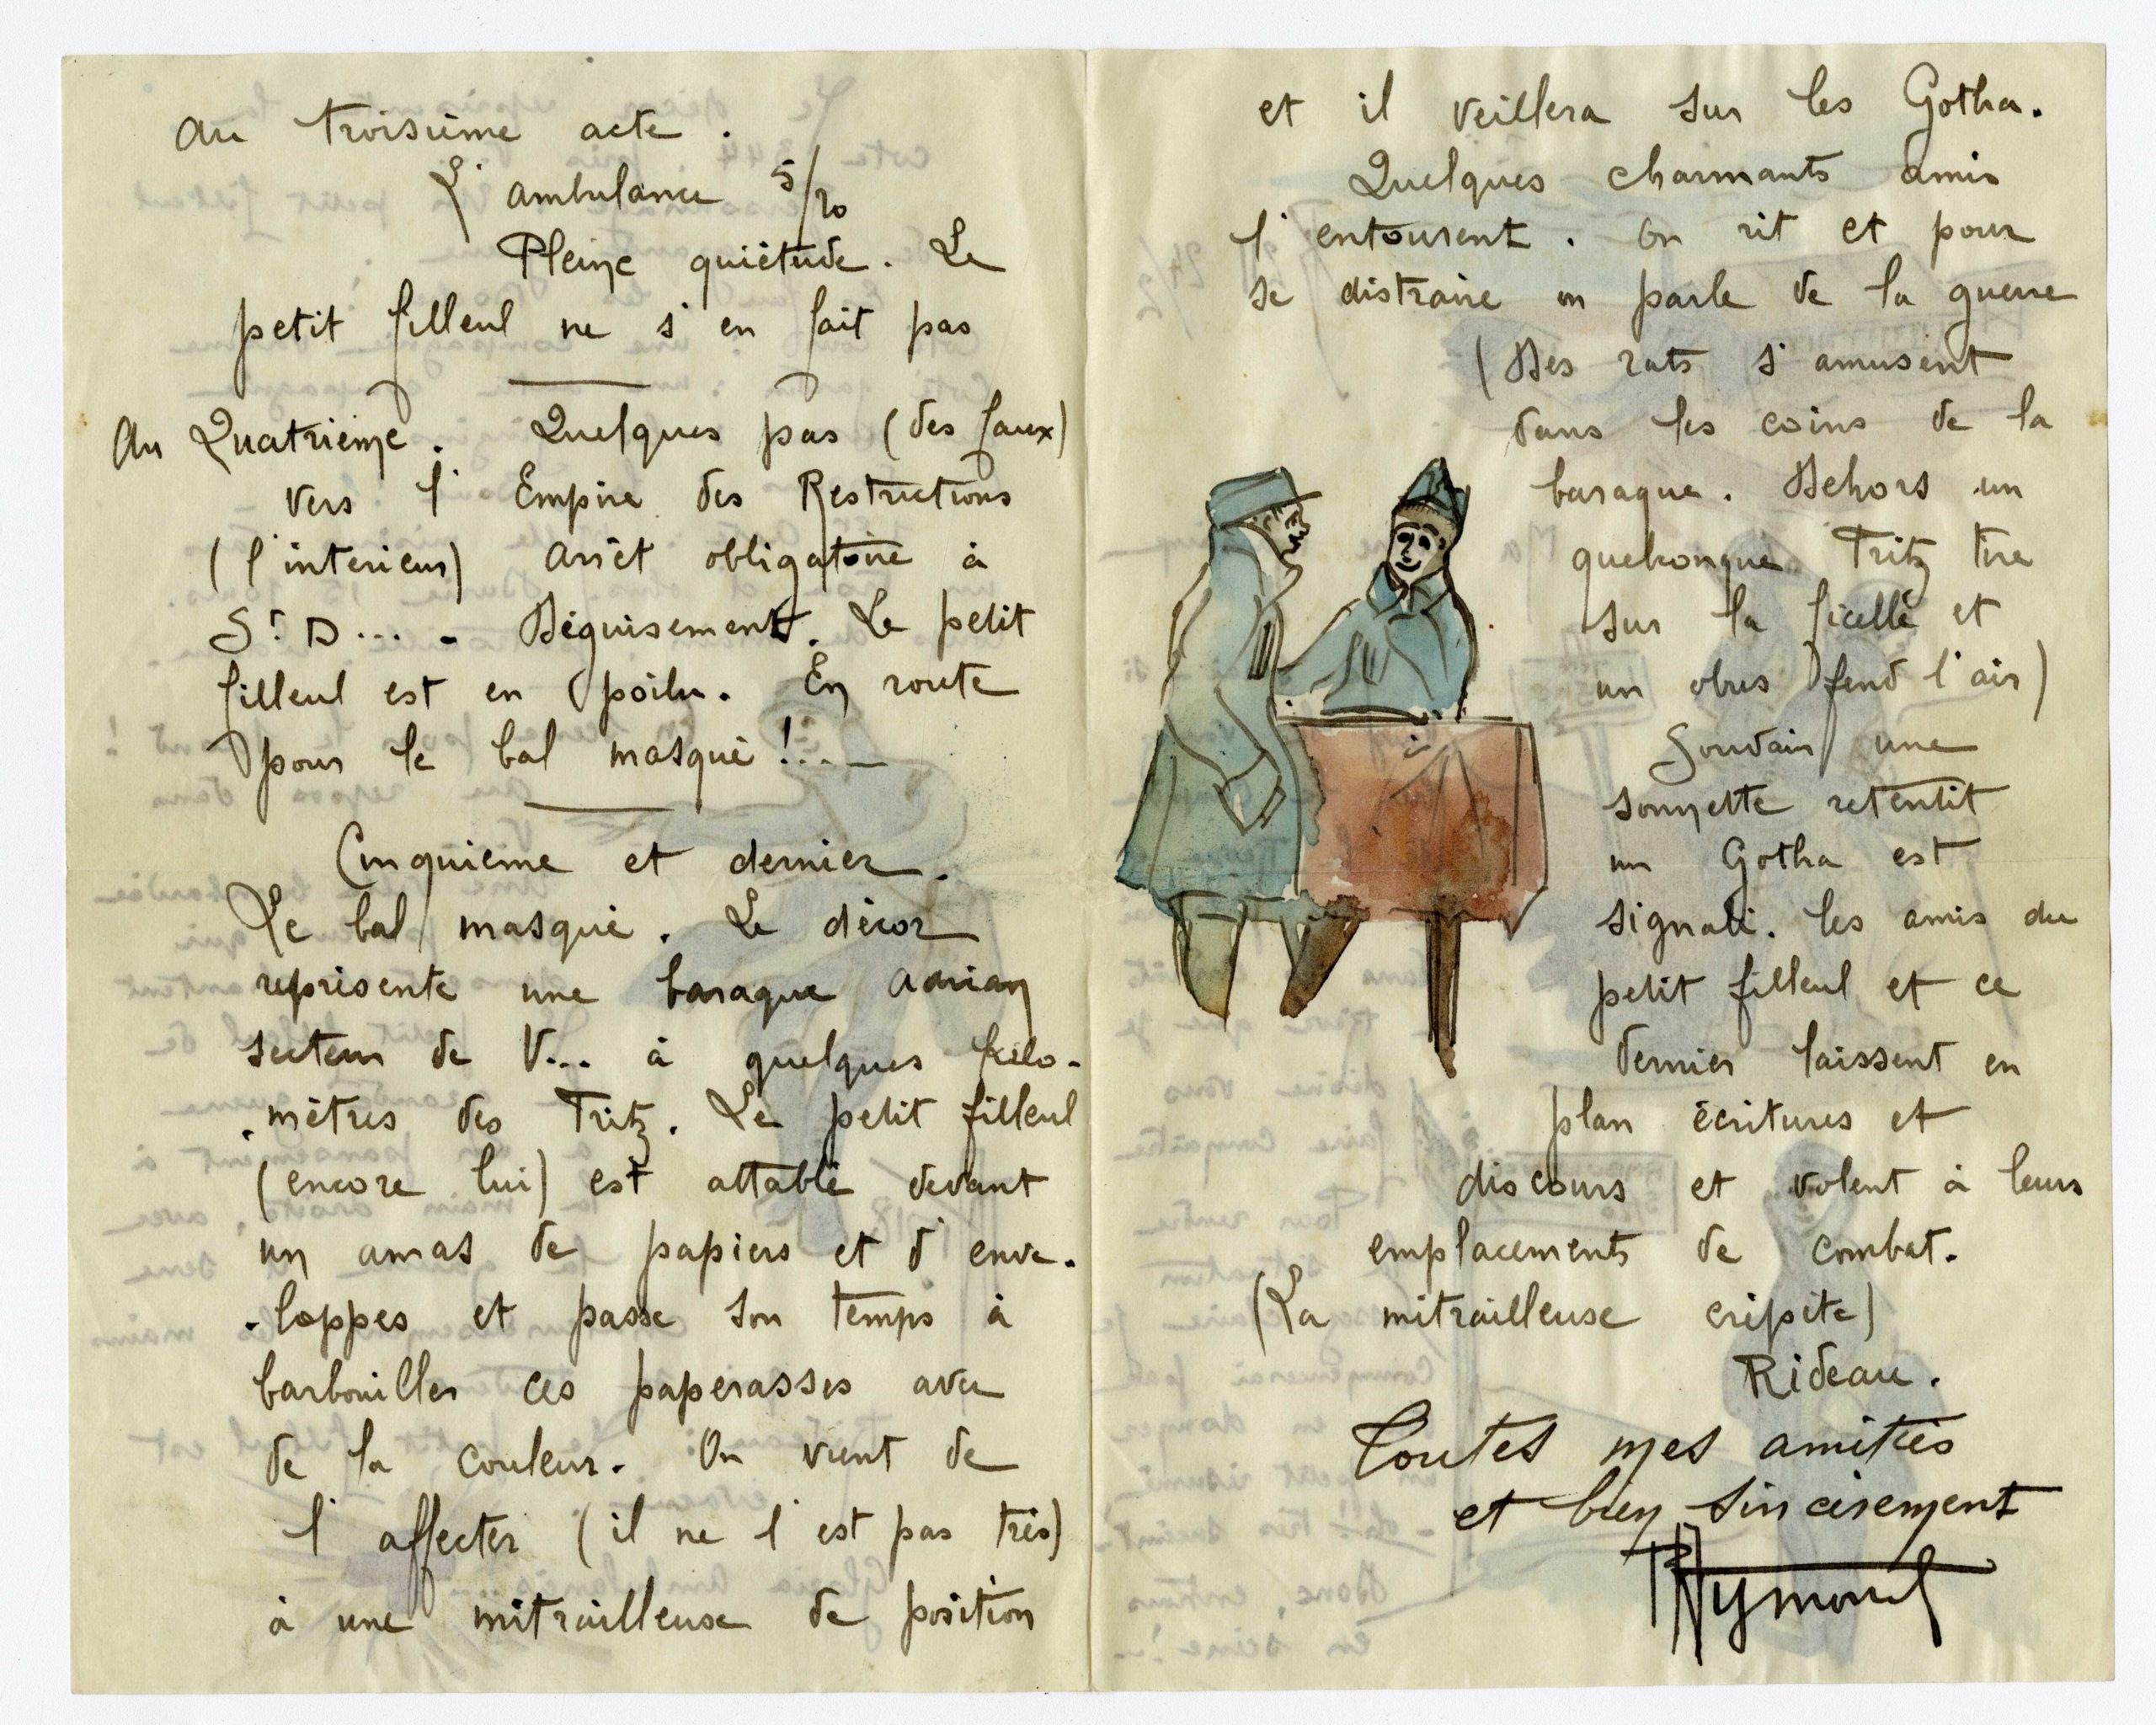 Au troisième acte.
L'ambulance 5/20
Pleine quiétude. Le
petit filleul ne s'en fait pas
Au Quatrième. Quelques pas (des faux)
vers l'Empire des Restrictions
(l'intérieur) Arrêt obligatoire à
St D... - Déguisement. Le petit
filleul est en poilu. En route
pour le bal masqué !...
Cinquième et dernier.
Le bal masqué. Le décor
représente une baraque Adrian
secteur de V... à quelques kilo-
-mètres des Fritz. Le petit filleul
(encore lui) est attablé devant
un amas de papiers et d'enve-
-loppes et passe son temps à
barbouiller ces paperasses avec
de la couleur. On vient de
l'affecter (il ne l'est pas très)
à une mitrailleuse de position
et il veillera sur les Gotha.
Quelques charmants amis
l'entourent. On rit et pour
se distraire on parle de la guerre
(Des rats s'amusent
dans les coins de la
baraque. Dehors un
quelconque Fritz tire
sur la ficelle et
un obus fend l'air)
Soudain une
sonnette retentit
un Gotha est
signalé. les amis du
petit filleul et ce
dernier laissent en
plan écritures et
discours et volent à leurs
emplacements de combat.
(La mitrailleuse crépite)
Rideau.
Toutes mes amitiés
et bien sincèrement